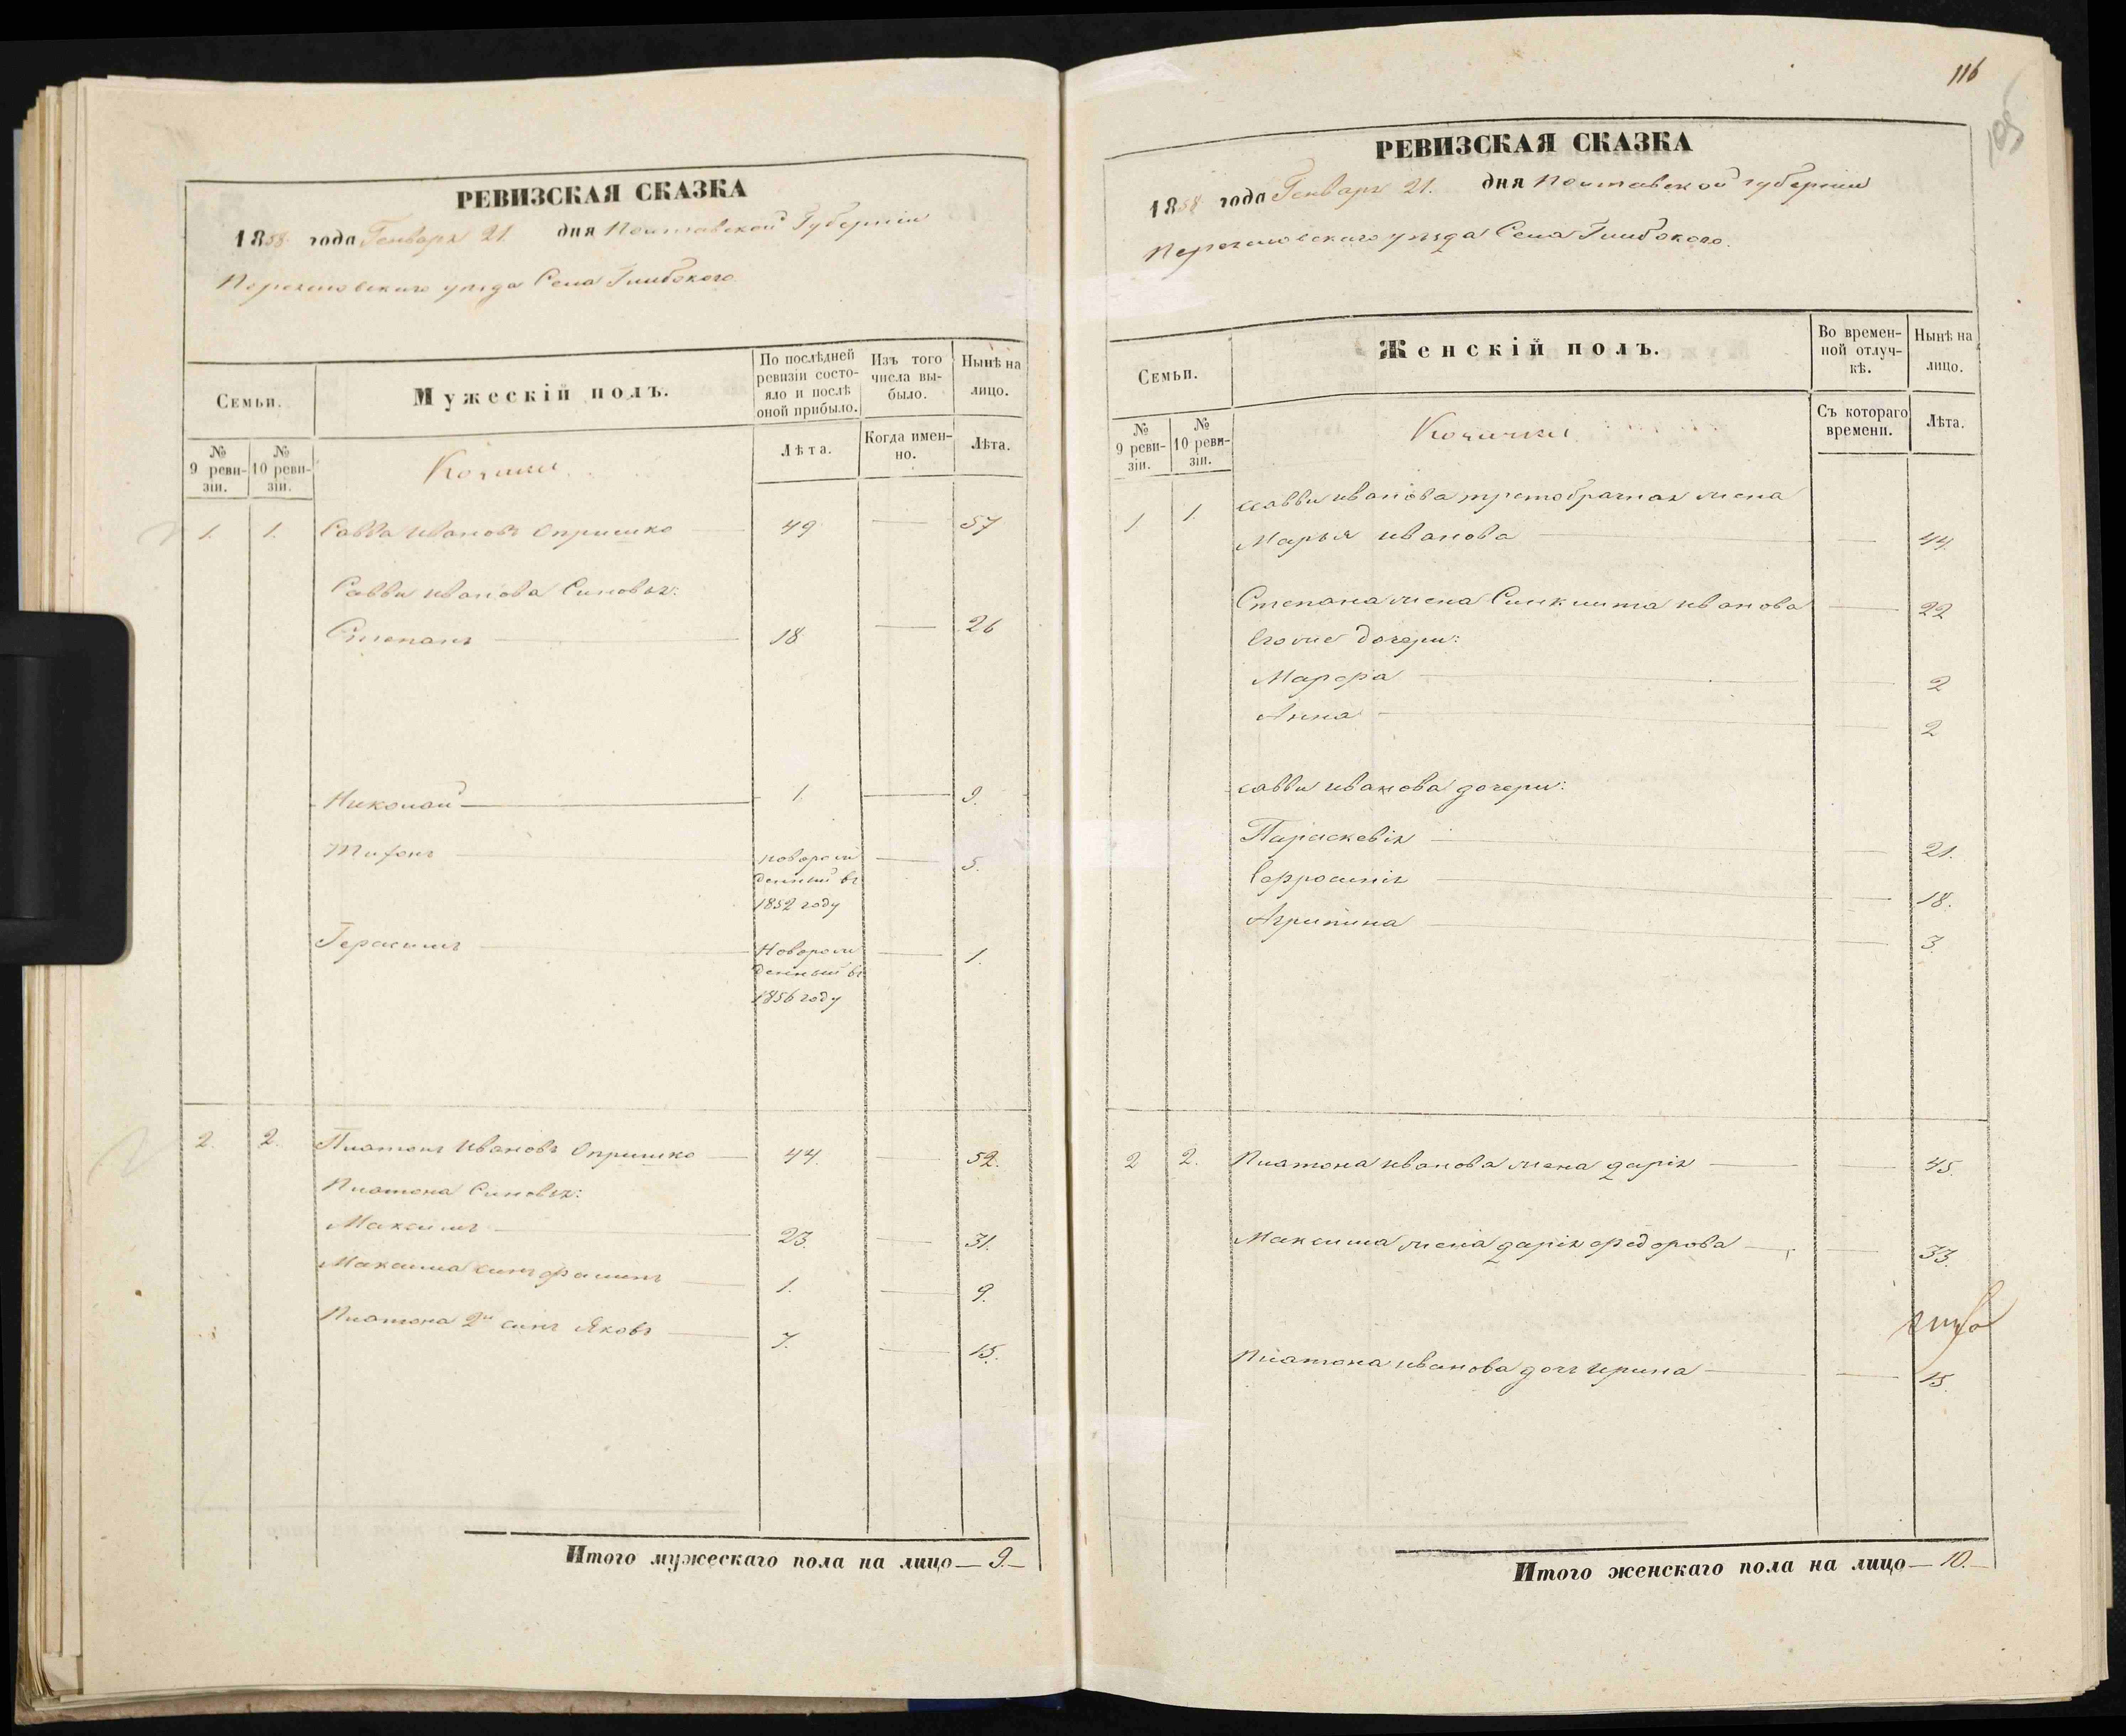 РЕВИЗСКАЯ СКАЗКА
1858 года Генваря 21. дня Полтавской Губерніи
Переяславскаго уезда Села Глибокого
Семьи.
Мужескій полъ.
По послѣдней ревизіи состояло и послѣ оной прибыло.
Изъ того числа выбыло.
Нынѣ на лицо.
№ 9 ревизіи.
№ 10 ревизіи.
Козаки
Лѣта.
Когда именно.
Лѣта.
1. 1. Савва Ивановъ Опришко 49 — 57
Саввы Иванова Синовья:
Степанъ 18 — 26
Николай 1. — 9.
Тифонъ новорож
денный въ
1852 году — 5.
Герасимъ Новорож
денный въ
1856 году — 1.
2. 2. Платонъ Ивановъ Опришко 44. — 52.
Платона Синовья:
Максимъ 23. — 31.
Максима синъ 1. — 9.
Платона 2й синъ Яковъ 7. — 15.
Итого мужескаго пола на лицо — 9. —
116
105
РЕВИЗСКАЯ СКАЗКА
1858 года Генваря 21. дня Полтавской губерніи
Переяславскаго уезда Села Глибокого.
Семьи.
Женскій полъ.
Во временной отлучкѣ.
Нынѣ на лицо.
№ 9 ревизіи.
№ 10 ревизіи.
Козачки
Съ котораго времени.
Лѣта.
1 1. Саввы Иванова третобрачная жена
Марья Иванова — 44.
Степана жена Синклита Иванова — 22
Егоже дочери:
Марфа — 2
Анна — 2
Саввы Иванова дочери:
Параскевія — 21.
Ефросинія — 18.
Агрипина — 3.
2 2. Платона Иванова жена Дарія — 45.
Максима жена Дарія Федорова — 33.
Платона Иванова дочь Ирина — 15.
Итого женскаго пола на лицо — 10. —